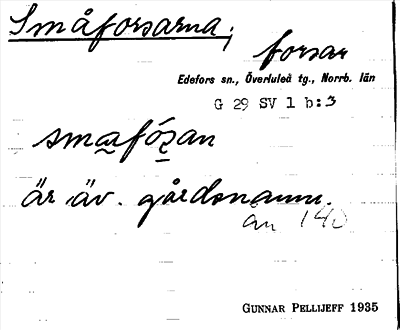 Småforsarna;
forsar
Edefors sn., Överluleå tg., Norrb. län
G 29 SV 1 b:3
smafósan
är äv. gårdsnamn.
ån 140
GUNNAR PELLIJEFF 1935